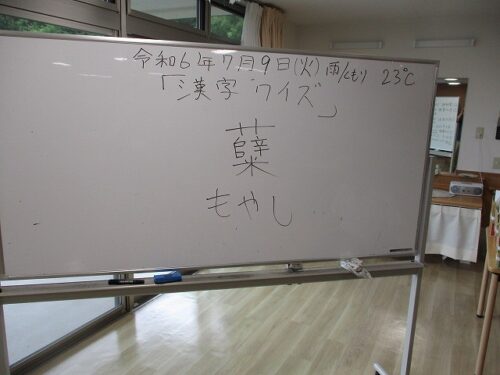 令和6年7月9日(火) 雨/くもり 23℃
「漢字クイズ」
糵
もやし